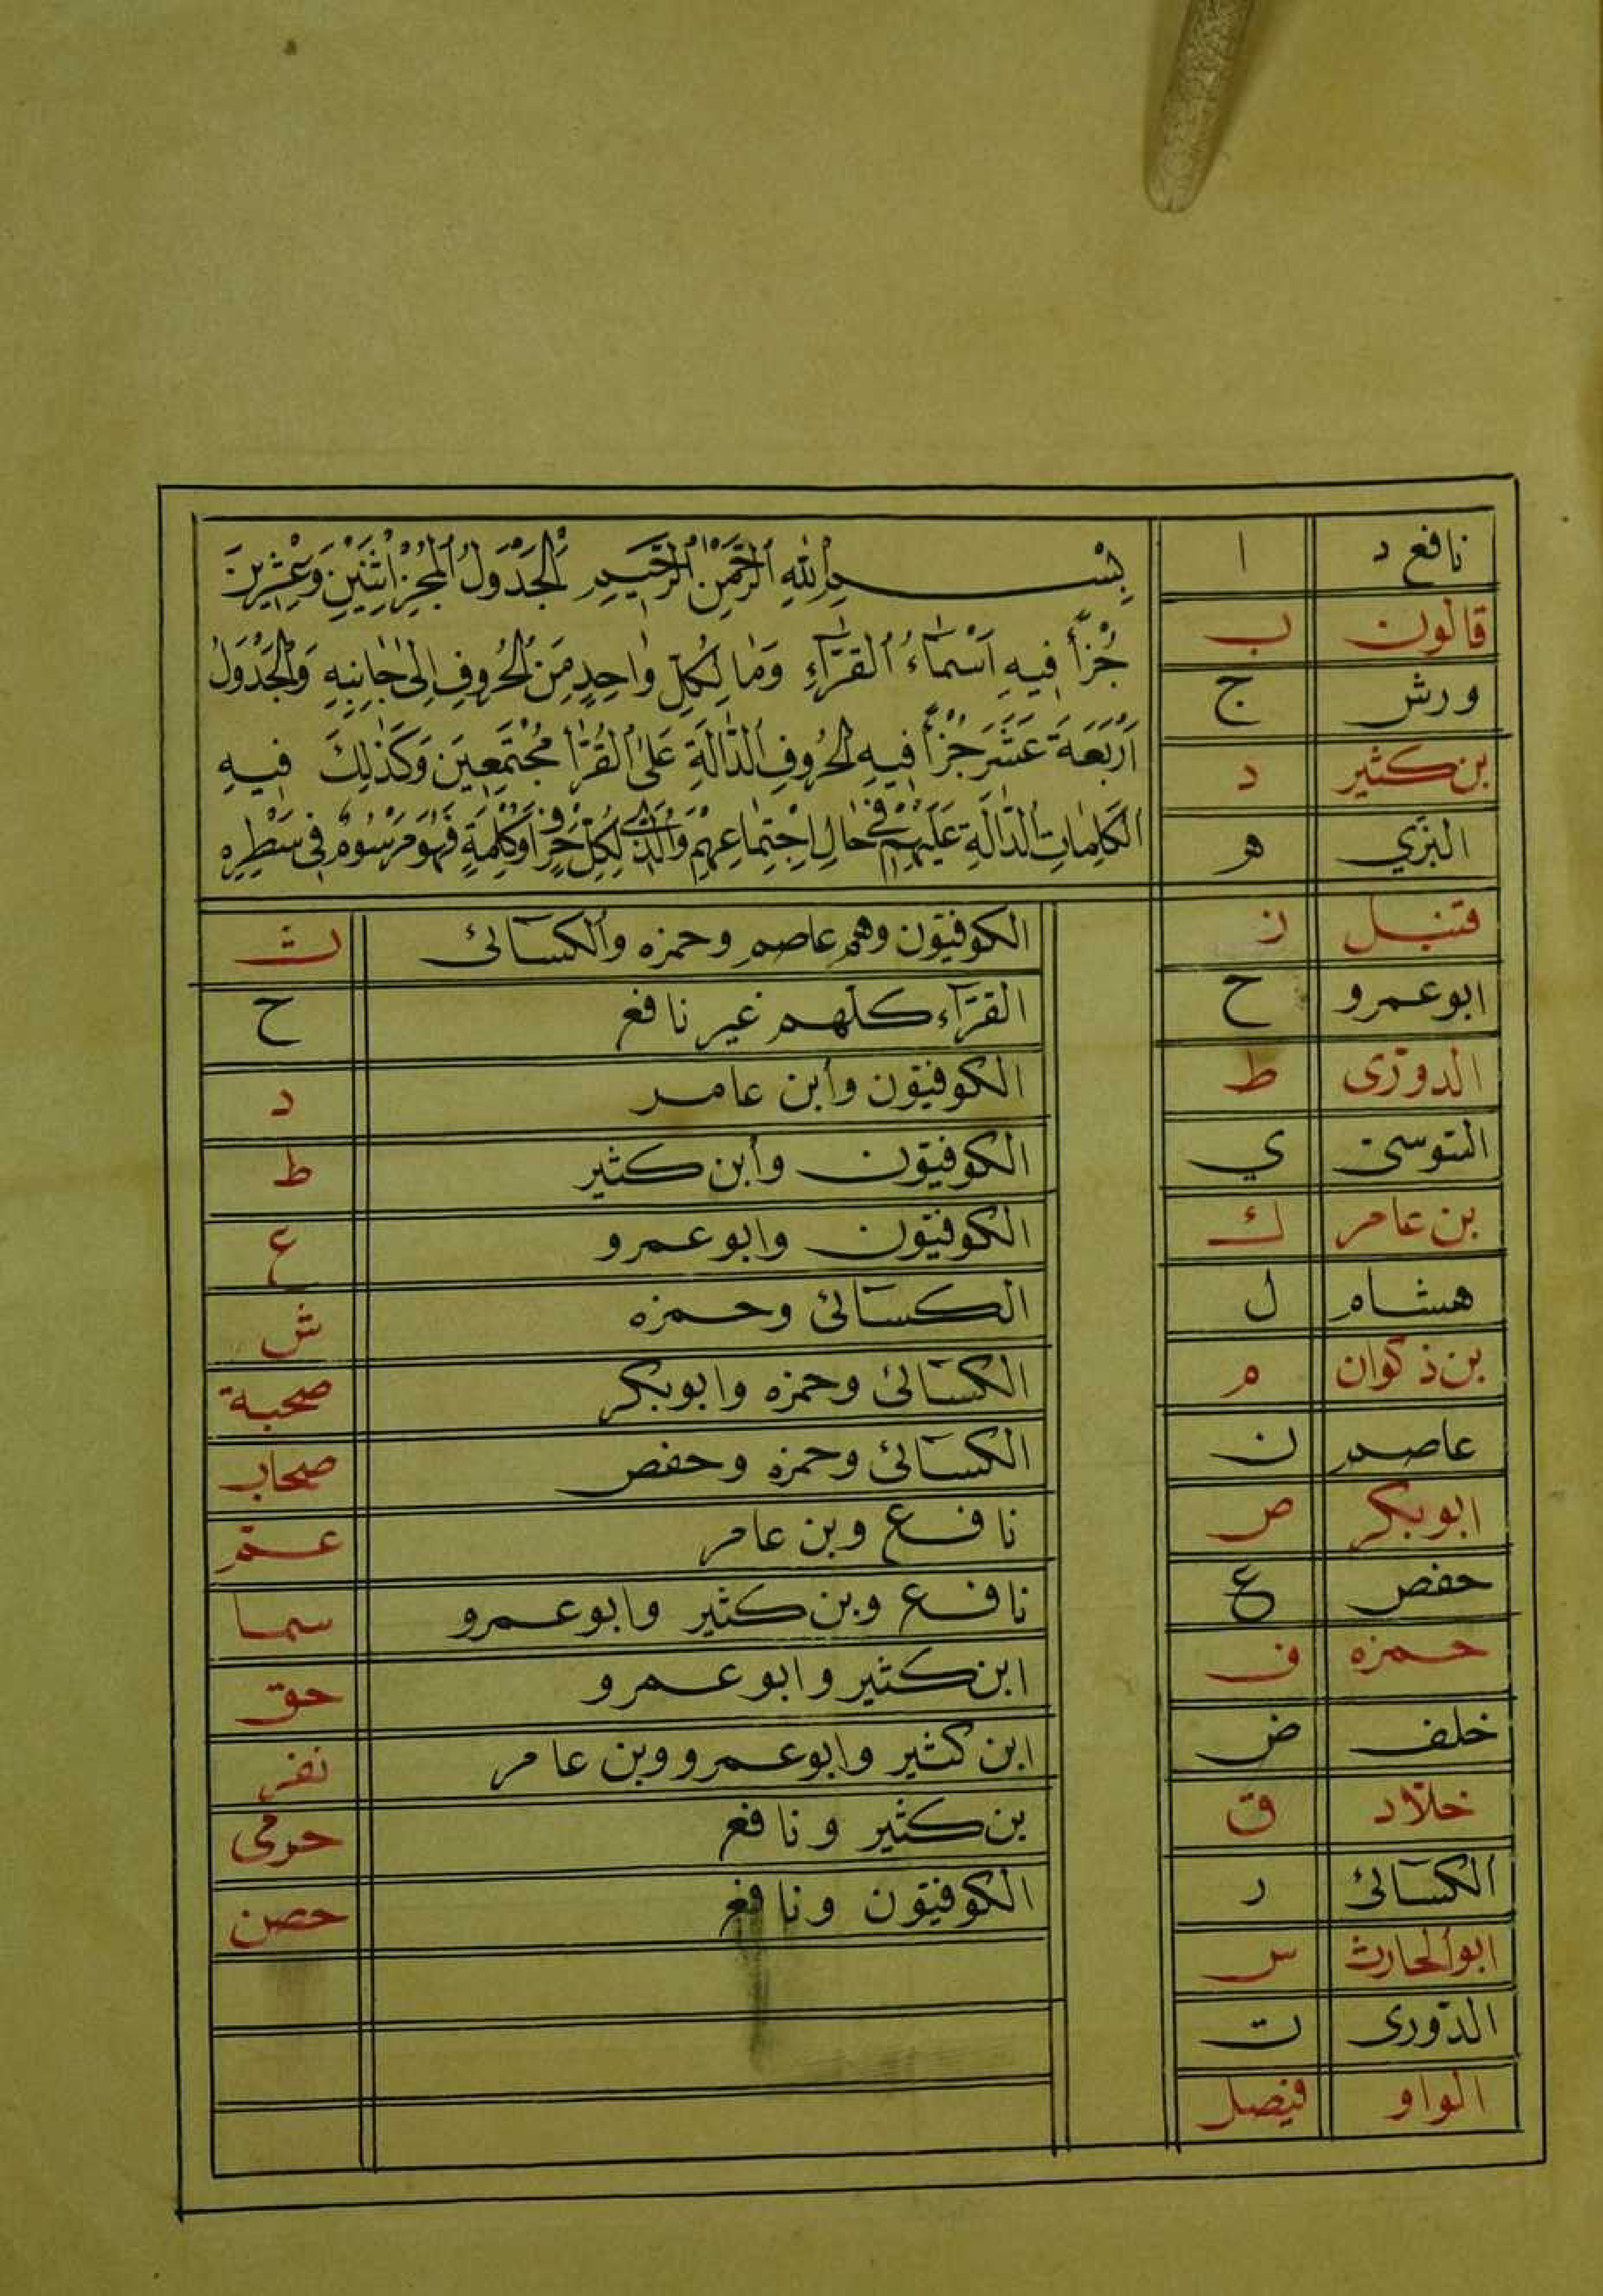 بِسْمِ اللهِ الرَّحْمٰنِ الرَّحِيمِ اَلْجَدْوَلُ الْمُجَزَّأ اِثْنَيْنِ وَعِشْرِينَ
جُزْأً فِيهِ اَسْمَاءُ القُرَّاءِ وَمَا لِكُلِّ وَاحِدٍ مِنَ الْحُرُوفِ اِلىٰ جَانِبِهِ وَالْجَدْوَلُ
اَرْبَعَةَ عَشَرَ جُزْأً فِيهِ الْحُرُوفِ الدَّالَّةِ عَلَى الْقُرَّا مُجْتَمِعِينَ وَكَذٰلِكَ فِيهِ
الكَلِمَاتِ الدَّالَّةِ عَلَيْهِمْ فِي حَالِ اِجْتِمَاعِهِمْ وَالَّذِي لِكُلِّ حَرْفٍ اَوْ كَلِمَةٍ فَهُوَ مَرْسُومٌ فِي سَطْرِهِ
نافع د ا
قالون ب
ورش ج
بن كثير د
البزي ه
قنبل ز
ابوعمرو ح
الدوري ط
السوسي ي
بن عامر ك
هشام ل
بن ذكوان م
عاصم ن
ابوبكر ص
حفص ع
حمزه ف
خلف ض
خلاد ق
الكسائئ ر
ابوالحارث س
الدوري ت
الواو فيصل
الكوفيون وهم عاصم وحمزه والكسائئ ث
القراء كلهم غير نافع خ
الكوفيون وابن عامر ذ
الكوفيون وابن كثير ظ
الكوفيون وابو عمرو غ
الكسائئ وحمزه ش
الكسائئ وحمزه وابوبكر صحبة
الكسائئ وحمزه وحفص صحاب
نافع وبن عامر عم
نافع وبن كثير وابوعمرو سما
ابن كثير وابو عمرو حق
ابن كثير وابوعمرو وبن عامر نفر
بن كثير ونافع حرمى
الكوفيون ونافع حصن